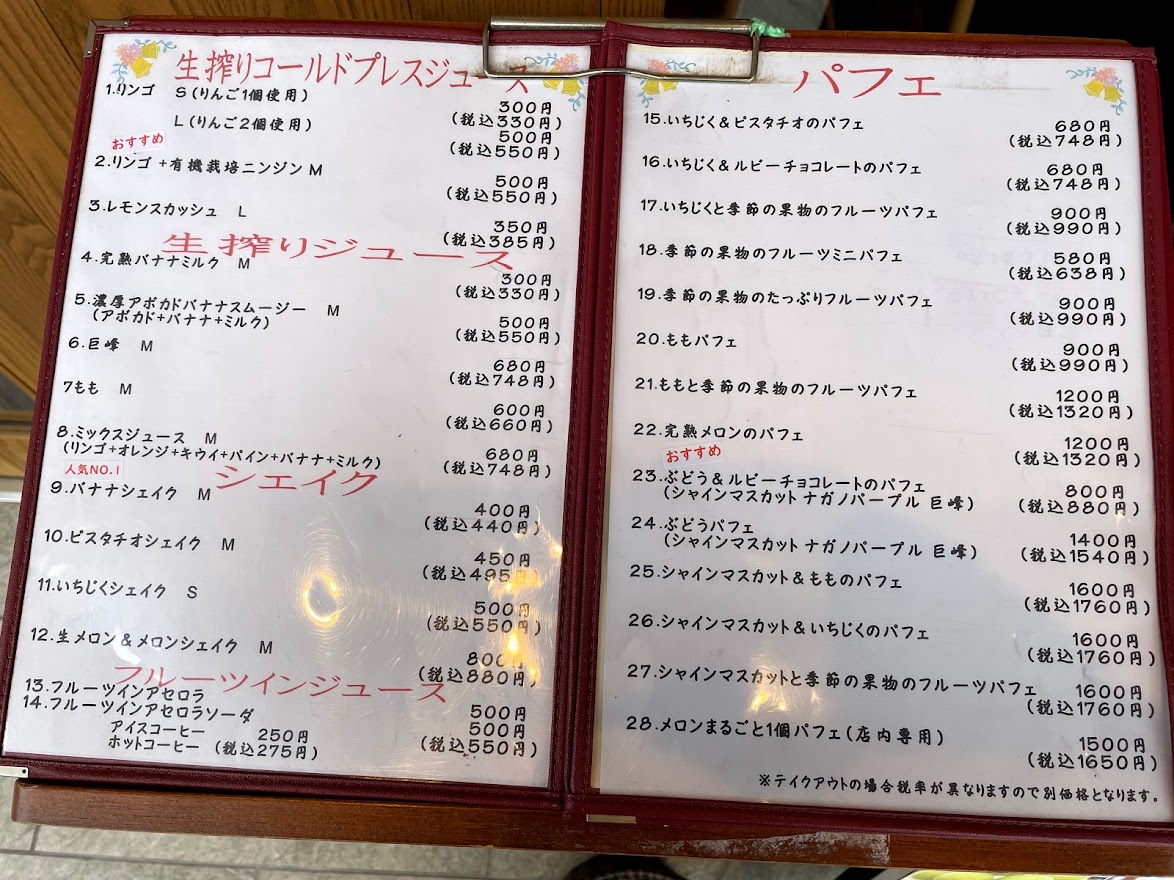 生搾りコールドプレスジュース
1.リンゴ S(りんご1個使用)
300円
(税込330円)
L(りんご2個使用)
500円
(税込550円)
おすすめ
2.リンゴ+有機栽培ニンジン M
500円
(税込550円)
3.レモンスカッシュ L
350円
(税込385円)
生搾りジュース
4.完熟バナナミルク M
300円
(税込330円)
5.濃厚アボカドバナナスムージー M
(アボカド+バナナ+ミルク)
500円
(税込550円)
6.巨峰 M
680円
(税込748円)
7もも M
600円
(税込660円)
8.ミックスジュース M
(リンゴ+オレンジ+キウイ+パイン+バナナ+ミルク)
680円
(税込748円)
シェイク
人気NO.1
9.バナナシェイク M
400円
(税込440円)
10.ピスタチオシェイク M
450円
(税込495円)
11.いちじくシェイク S
500円
(税込550円)
12.生メロン&メロンシェイク M
800円
(税込880円)
フルーツインジュース
13.フルーツインアセロラ
500円
14.フルーツインアセロラソーダ
500円
(税込550円)
アイスコーヒー 250円
ホットコーヒー (税込275円)
パフェ
15.いちじく&ピスタチオのパフェ
680円
(税込748円)
16.いちじく&ルビーチョコレートのパフェ
680円
(税込748円)
17.いちじくと季節の果物のフルーツパフェ
900円
(税込990円)
18.季節の果物のフルーツミニパフェ
580円
(税込638円)
19.季節の果物のたっぷりフルーツパフェ
900円
(税込990円)
20.ももパフェ
900円
(税込990円)
21.ももと季節の果物のフルーツパフェ
1200円
(税込1320円)
22.完熟メロンのパフェ
1200円
(税込1320円)
おすすめ
23.ぶどう&ルビーチョコレートのパフェ
(シャインマスカット ナガノパープル 巨峰)
800円
(税込880円)
24.ぶどうパフェ
(シャインマスカット ナガノパープル 巨峰)
1400円
(税込1540円)
25.シャインマスカット&もものパフェ
1600円
(税込1760円)
26.シャインマスカット&いちじくのパフェ
1600円
(税込1760円)
27.シャインマスカットと季節の果物のフルーツパフェ
1600円
(税込1760円)
28.メロンまるごと1個パフェ(店内専用)
1500円
(税込1650円)
※テイクアウトの場合税率が異なりますので別価格となります。